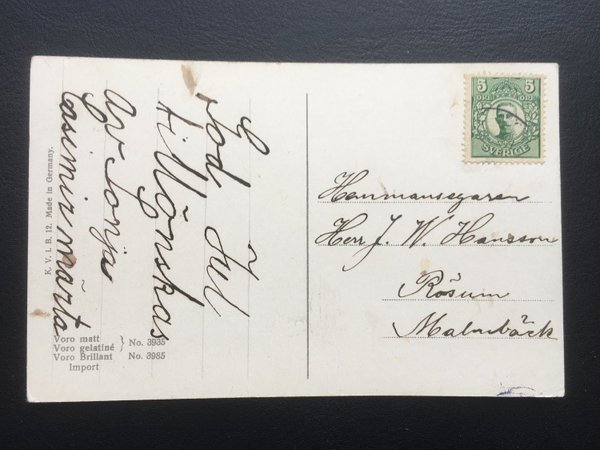 God Jul
tillönskas
av Sonja
Casimir Märta
5 5
ÖRE ÖRE
SVERIGE
Hemmansegaren
Herr J. W. Hansson
Rösum
Malmbäck
K. V. i. B. 12. Made in Germany.
Voro matt
Voro gelatiné } No. 3935
Voro Brillant No. 3985
Import